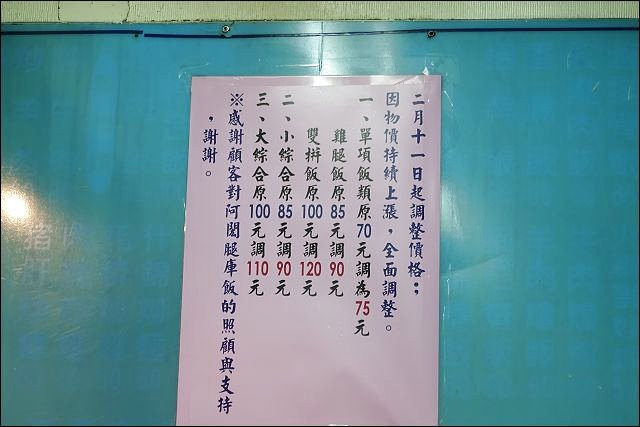 二月十一日起調整價格；
因物價持續上漲，全面調整。
一、單項飯類原70元調為75元
雞腿飯原85元調90元
雙拼飯原100元調120元
二、小綜合原85元調90元
三、大綜合原100元調110元
※感謝顧客對阿閎腿庫飯的照顧與支持
，謝謝。